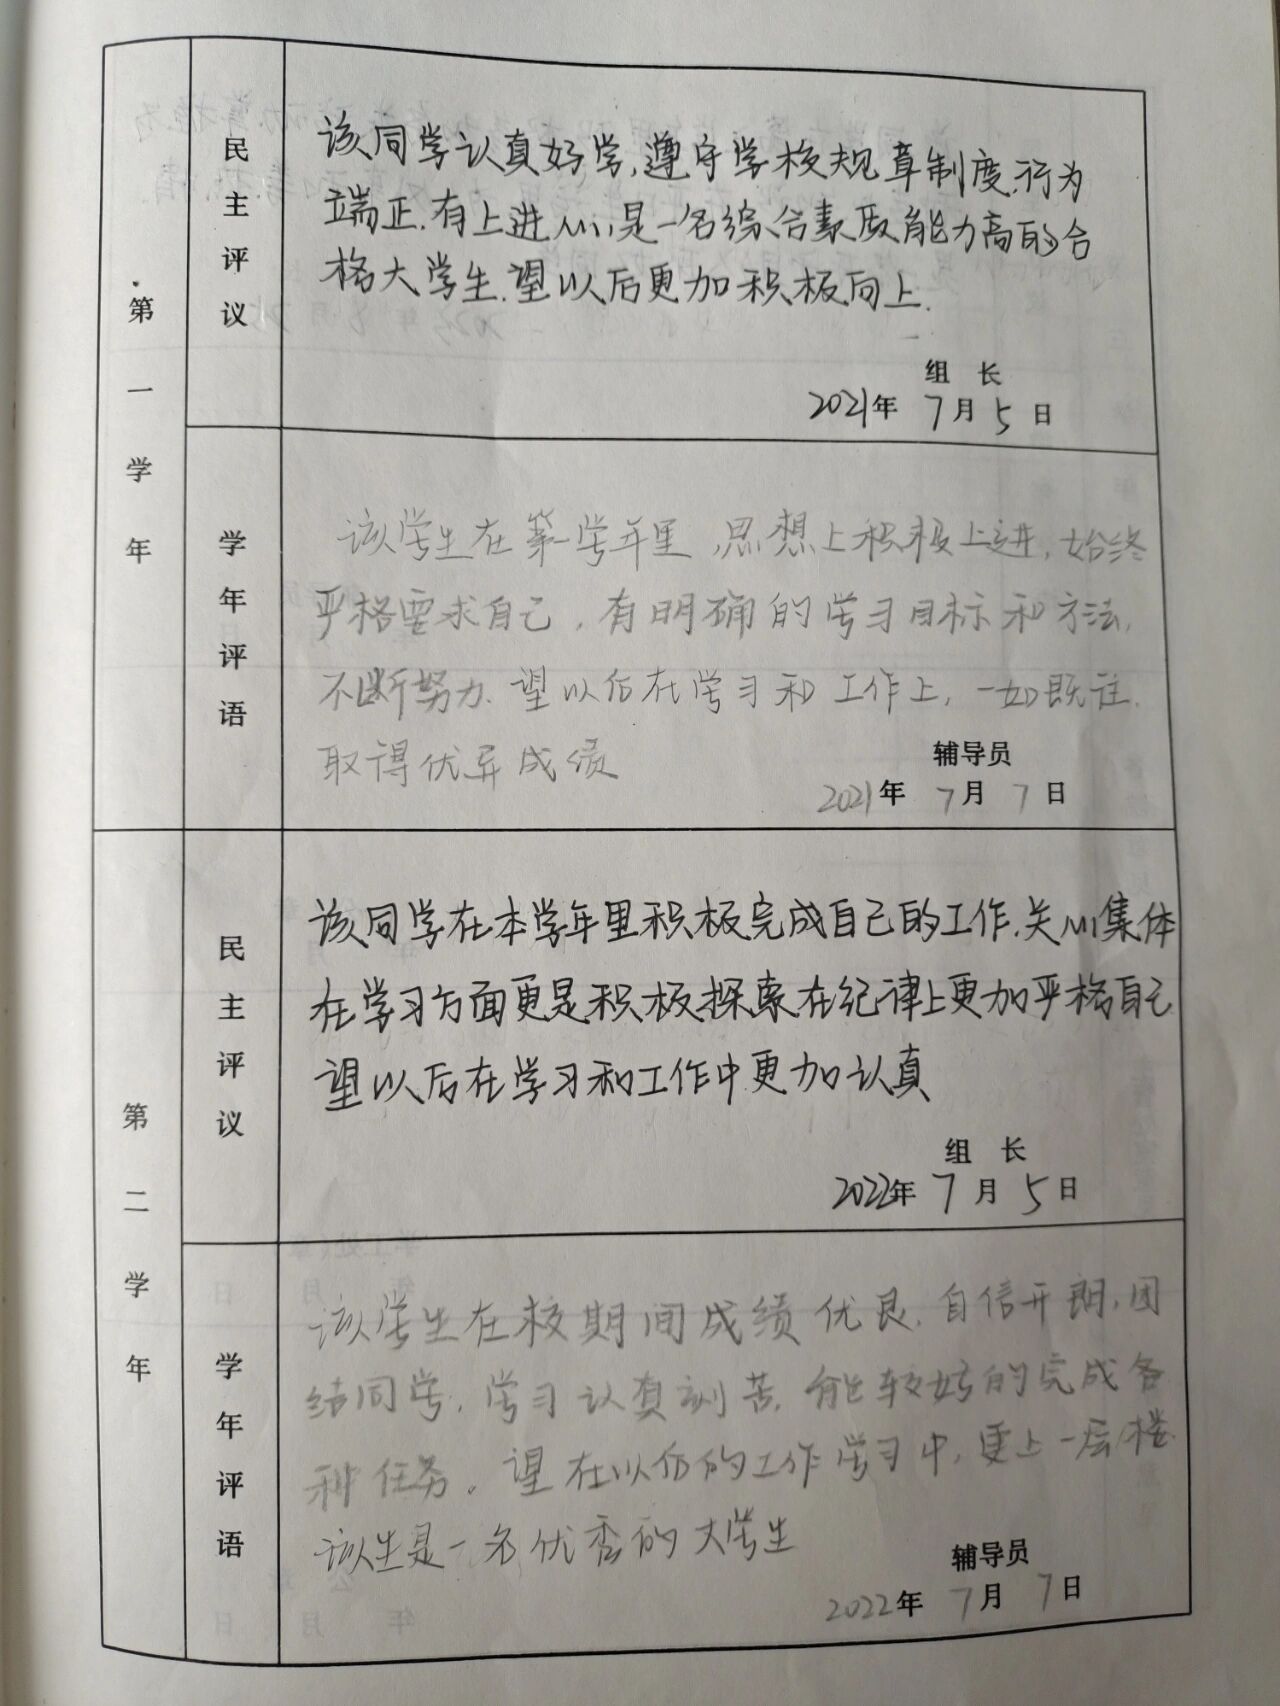 第一学年
民主评议
该同学认真好学,遵守学校规章制度.行为
端正.有上进心,是一名综合素质能力高的合
格大学生.望以后更加积极向上.
组 长
2021年 7月 5日
学年评语
该学生在第一学年里,思想上积极上进,始终
严格要求自己,有明确的学习目标和方法,
不断努力.望以后在学习和工作上,一如既往.
取得优异成绩
辅导员
2021年 7月 7日
第二学年
民主评议
该同学在本学年里积极完成自己的工作.关心集体
在学习方面更是积极探索在纪律上更加严格自己
望以后在学习和工作中更加认真
组 长
2022年 7月 5日
学年评语
该学生在校期间成绩优良.自信开朗,团
结同学,学习认真刻苦,能较好的完成各
种任务。望在以后的工作学习中,更上一层楼.
该生是一名优秀的大学生
辅导员
2022年 7月 7日